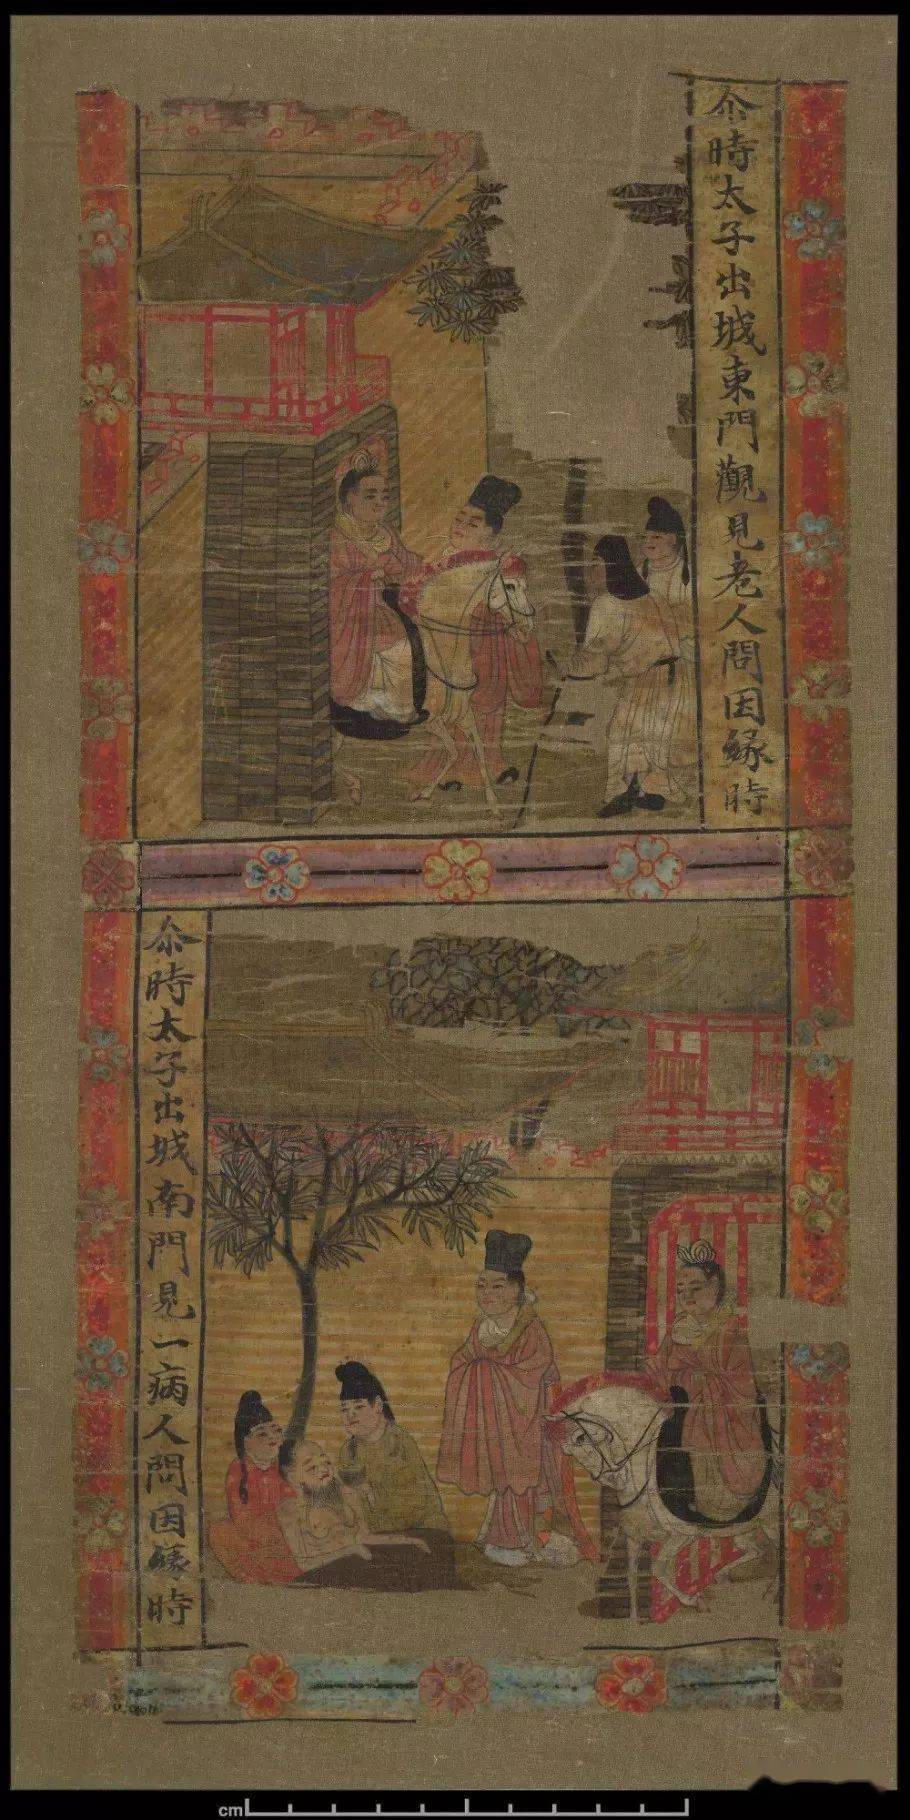 尒時太子出城東門觀見老人問因緣時
尒時太子出城南門見一病人問因緣時
cm